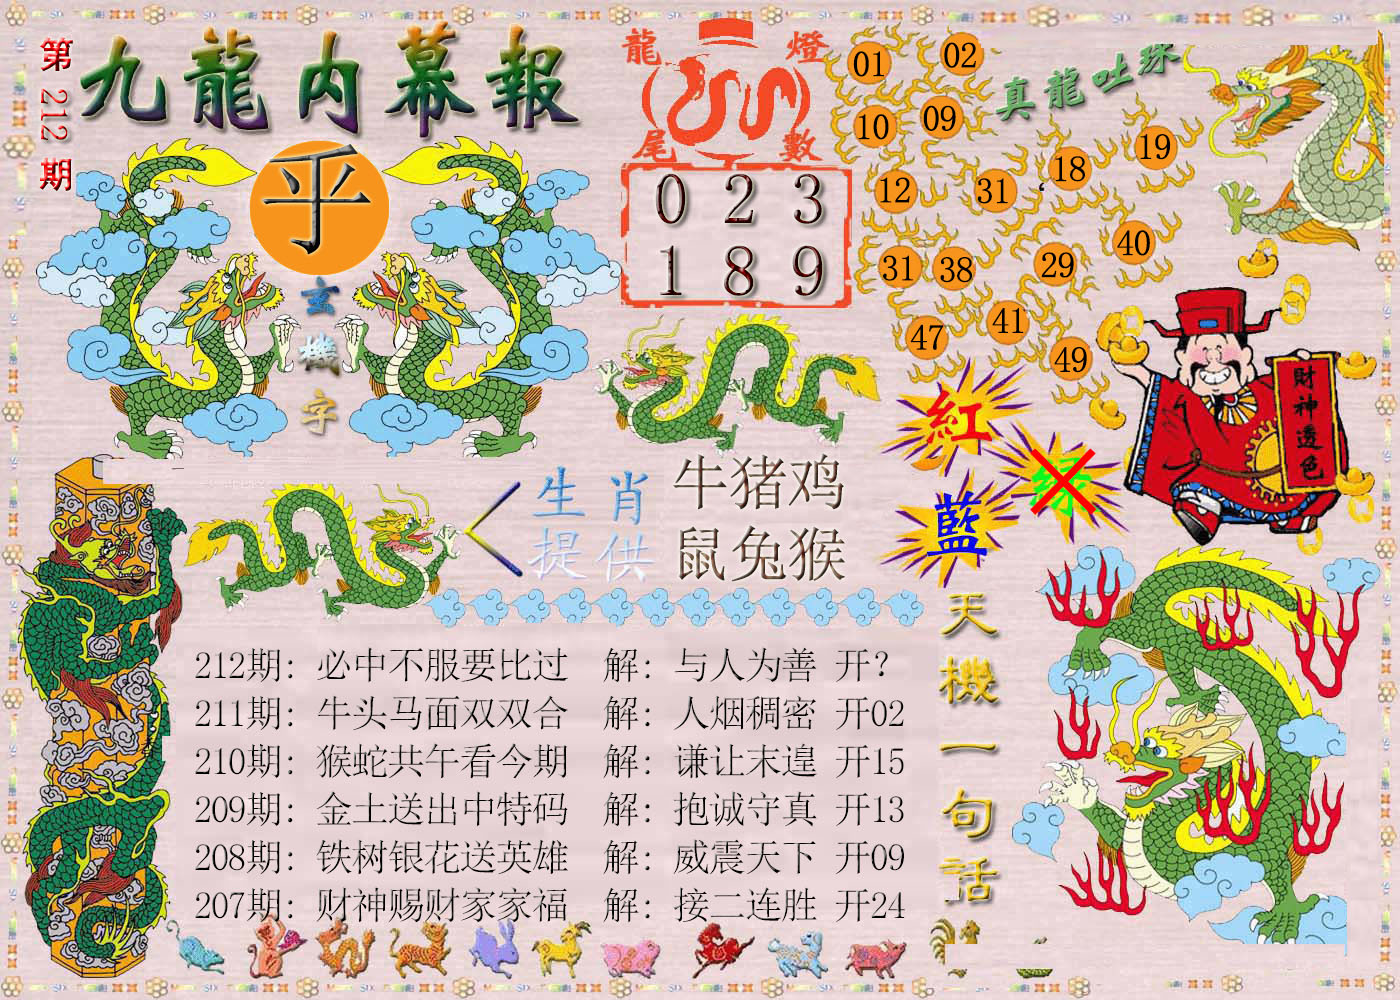 第212期
九龍内幕報
乎
玄機字
龍燈尾數
0 2 3
1 8 9
真龍吐珠
01 02
10 09
12 31 18 19
31 38 29 40
47 41 49
財神透色
紅
绿
藍
生肖提供
牛猪鸡
鼠兔猴
212期：必中不服要比过 解：与人为善 开？
211期：牛头马面双双合 解：人烟稠密 开02
210期：猴蛇共午看今期 解：谦让末遑 开15
209期：金土送出中特码 解：抱诚守真 开13
208期：铁树银花送英雄 解：威震天下 开09
207期：财神赐财家家福 解：接二连胜 开24
天機一句話